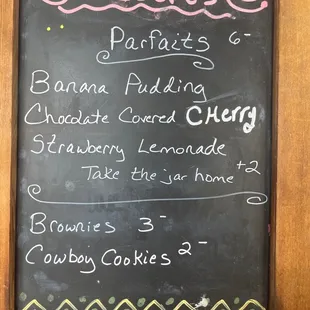 Parfaits 6-
Banana Pudding
Chocolate Covered CHerry
Strawberry Lemonade
Take the jar home +2
Brownies 3-
Cowboy Cookies 2-